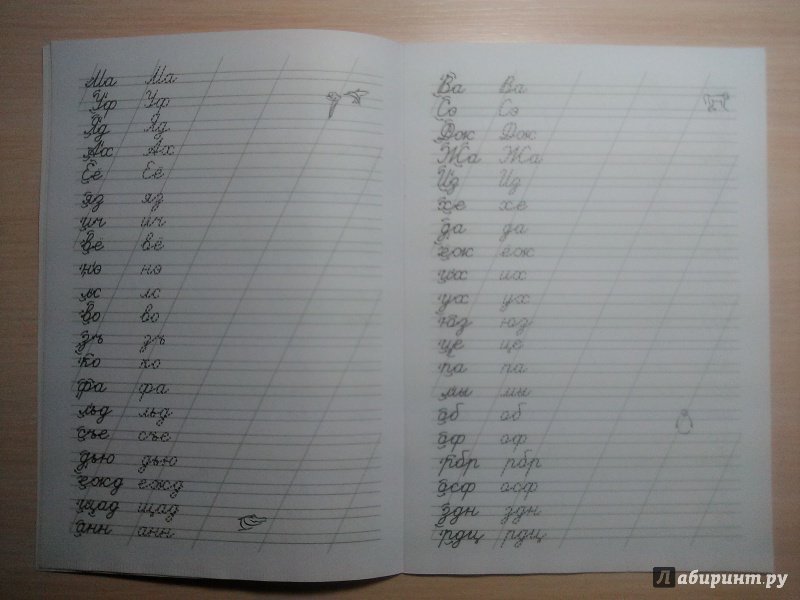 Ма Ма
Уф Уф
Яд Яд
Ах Ах
Её Её
яз яз
ич ич
вё вё
нэ нэ
лс лс
во во
зъ зъ
ко ко
фа фа
льд льд
съе съе
дью дью
ежд ежд
щад щад
анн анн
Ва Ва
Сэ Сэ
Дож Дож
Жа Жа
Ид Ид
хе хе
да да
ёж ёж
их их
ух ух
юз юз
це це
па па
мы мы
об об
оф оф
рбр рбр
осф осф
здн здн
рдц рдц
Лабиринт.ру